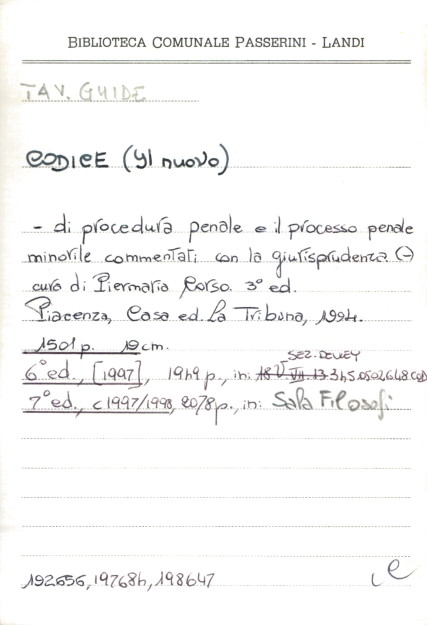 BIBLIOTECA COMUNALE PASSERINI - LANDI
TAV. GUIDE
CODICE (Il nuovo)
- di procedura penale e il processo penale
minorile commentati con la giurisprudenza (-)
cura di Piermaria Corso. 3° ed.
Piacenza, Casa ed. La Tribuna, 1994.
1501 p. 19 cm.
SEZ. DEWEY
6° ed., [1997], 1949 p., in: 345.0502648 COD
7° ed., c1997/1998, 2078 p., in: Sala Filosofi
192656, 197684, 198647